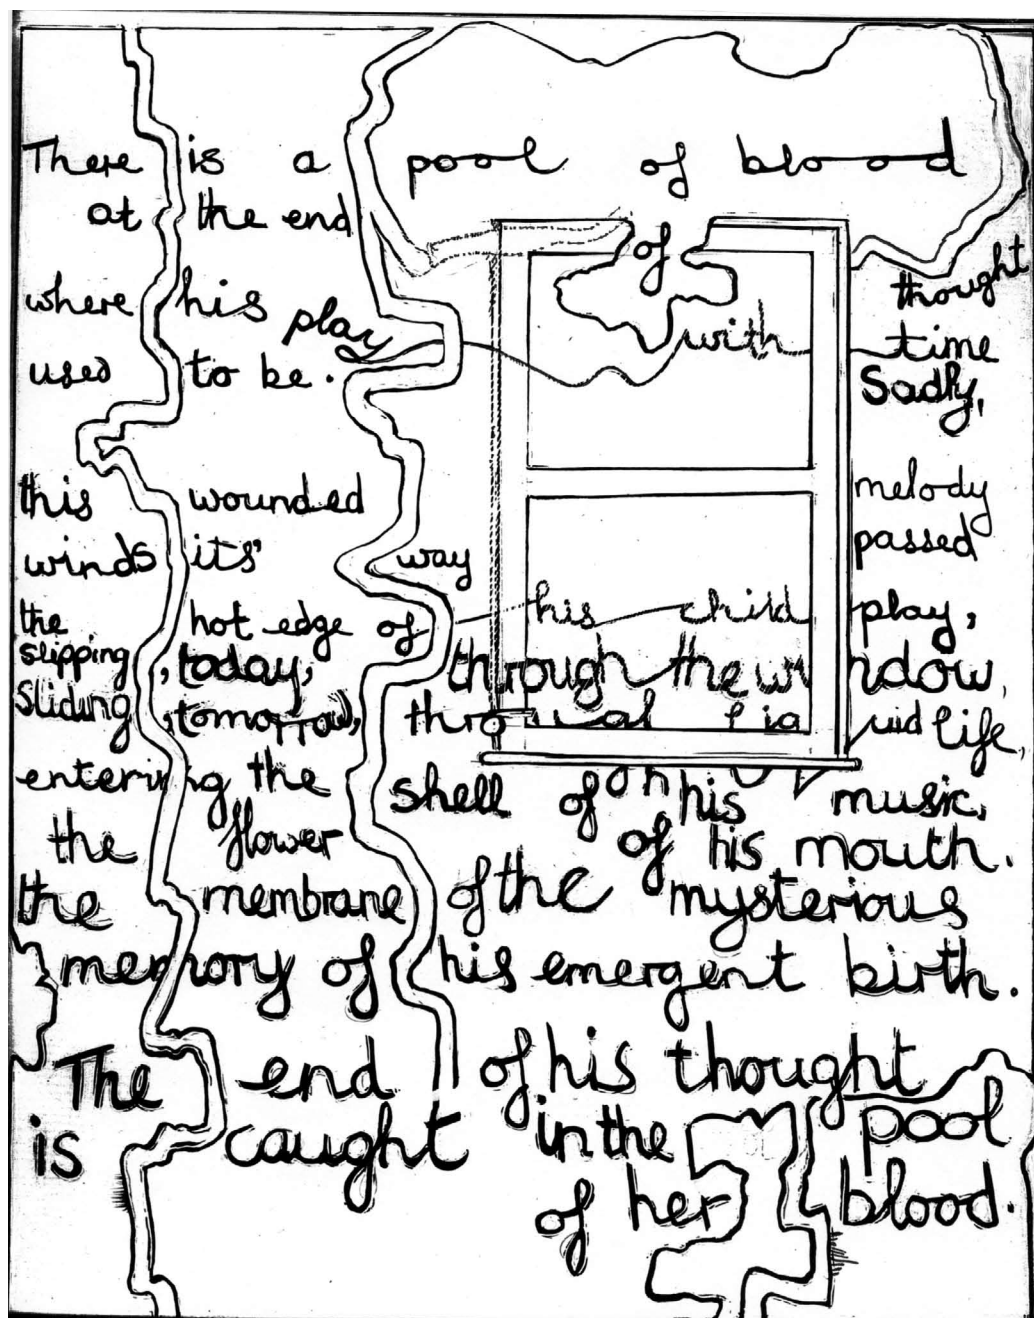 There is a pool of blood
at the end of thought
where his play with time
used to be. Sadly,
this wounded melody
winds its' way passed
the hot edge of his child play,
slipping, today, through the window,
sliding, tomorrow, through his mid life,
entering the shell of his music,
the flower of his mouth.
the membrane of the mysterious
memory of his emergent birth.
The end of his thought
is caught in the pool
of her blood.